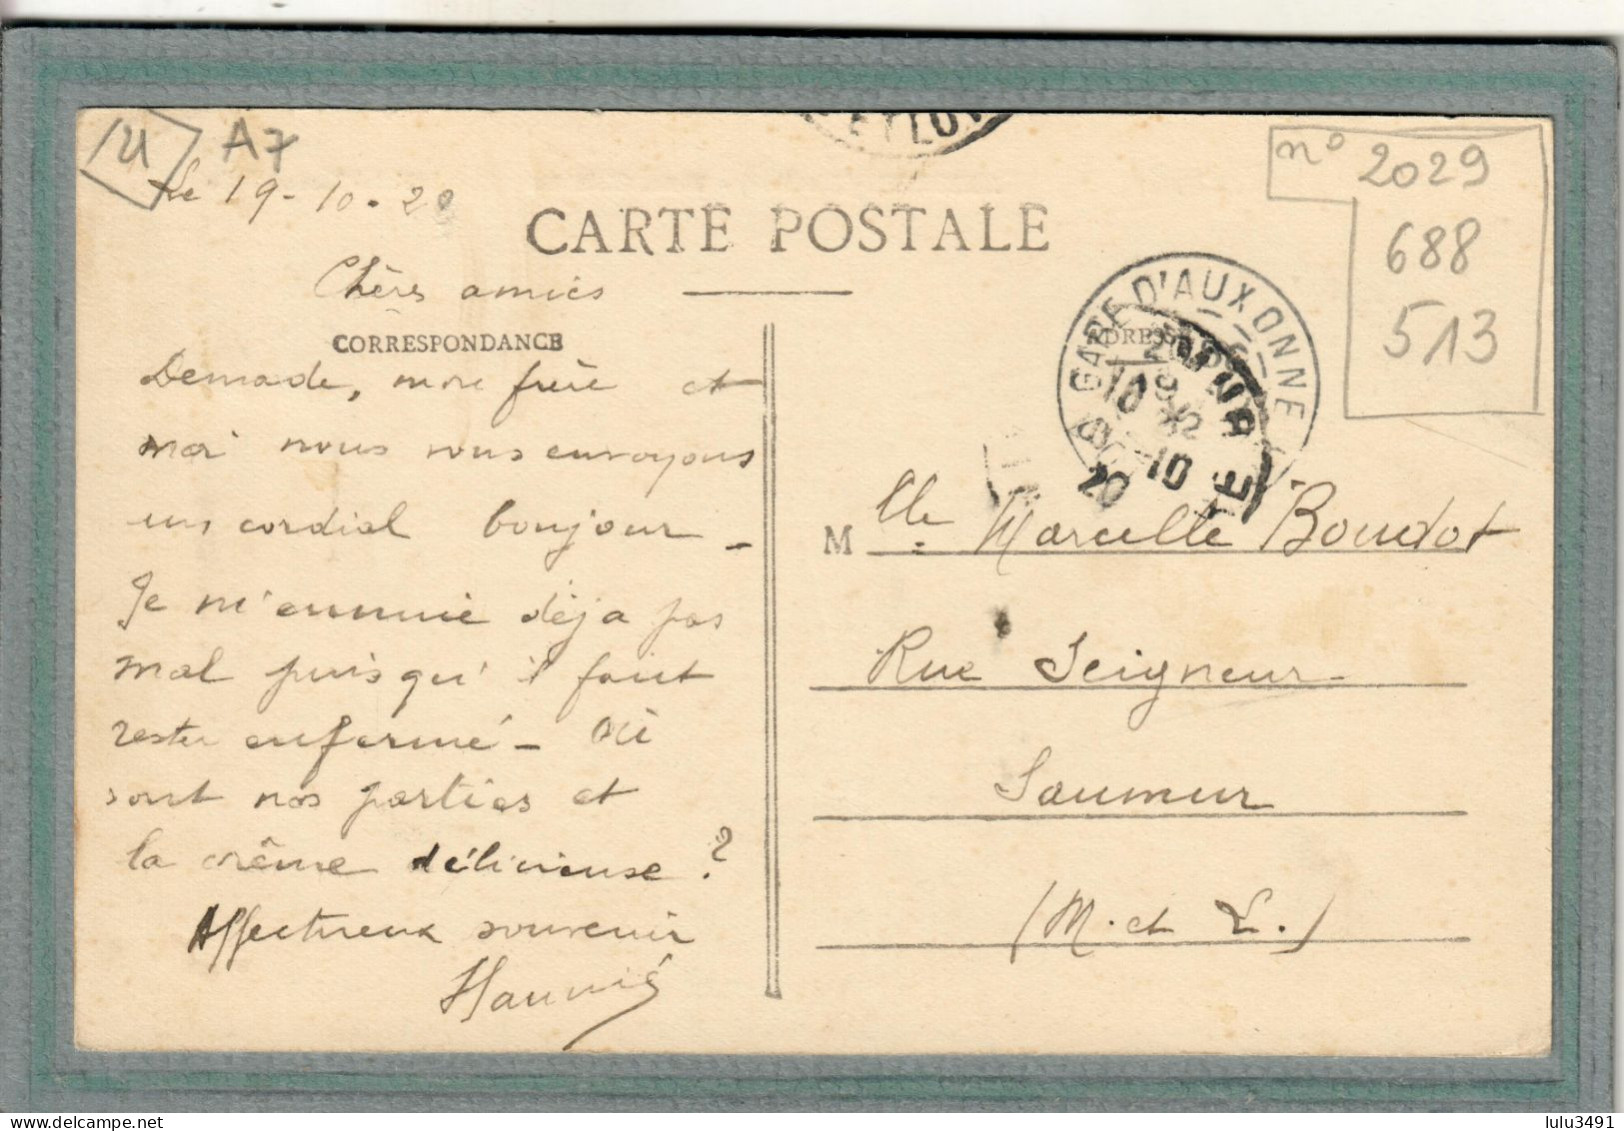 A7
Le 19-10-22
CARTE POSTALE
Chères amies
CORRESPONDANCE
Demade, mon frère et
moi nous vous envoyons
un cordial bonjour -
Je m'ennuie déja pas
mal puisqu'il faut
rester enfermé - Où
sont nos parties et
la crême délicieuse ?
Affectueux souvenir
n° 2029
688
513
GARE D'AUXONNE
ADRESSE
Mlle. Marcelle Boudot
Rue Seigneur
Saumur
(M. et L.)
lulu3491